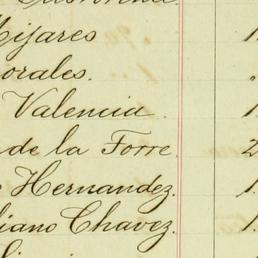 Mijares 1.
orales.
Valencia. 1.
de la Torre. 2
Hernandez. 1.
liano Chavez. 1.